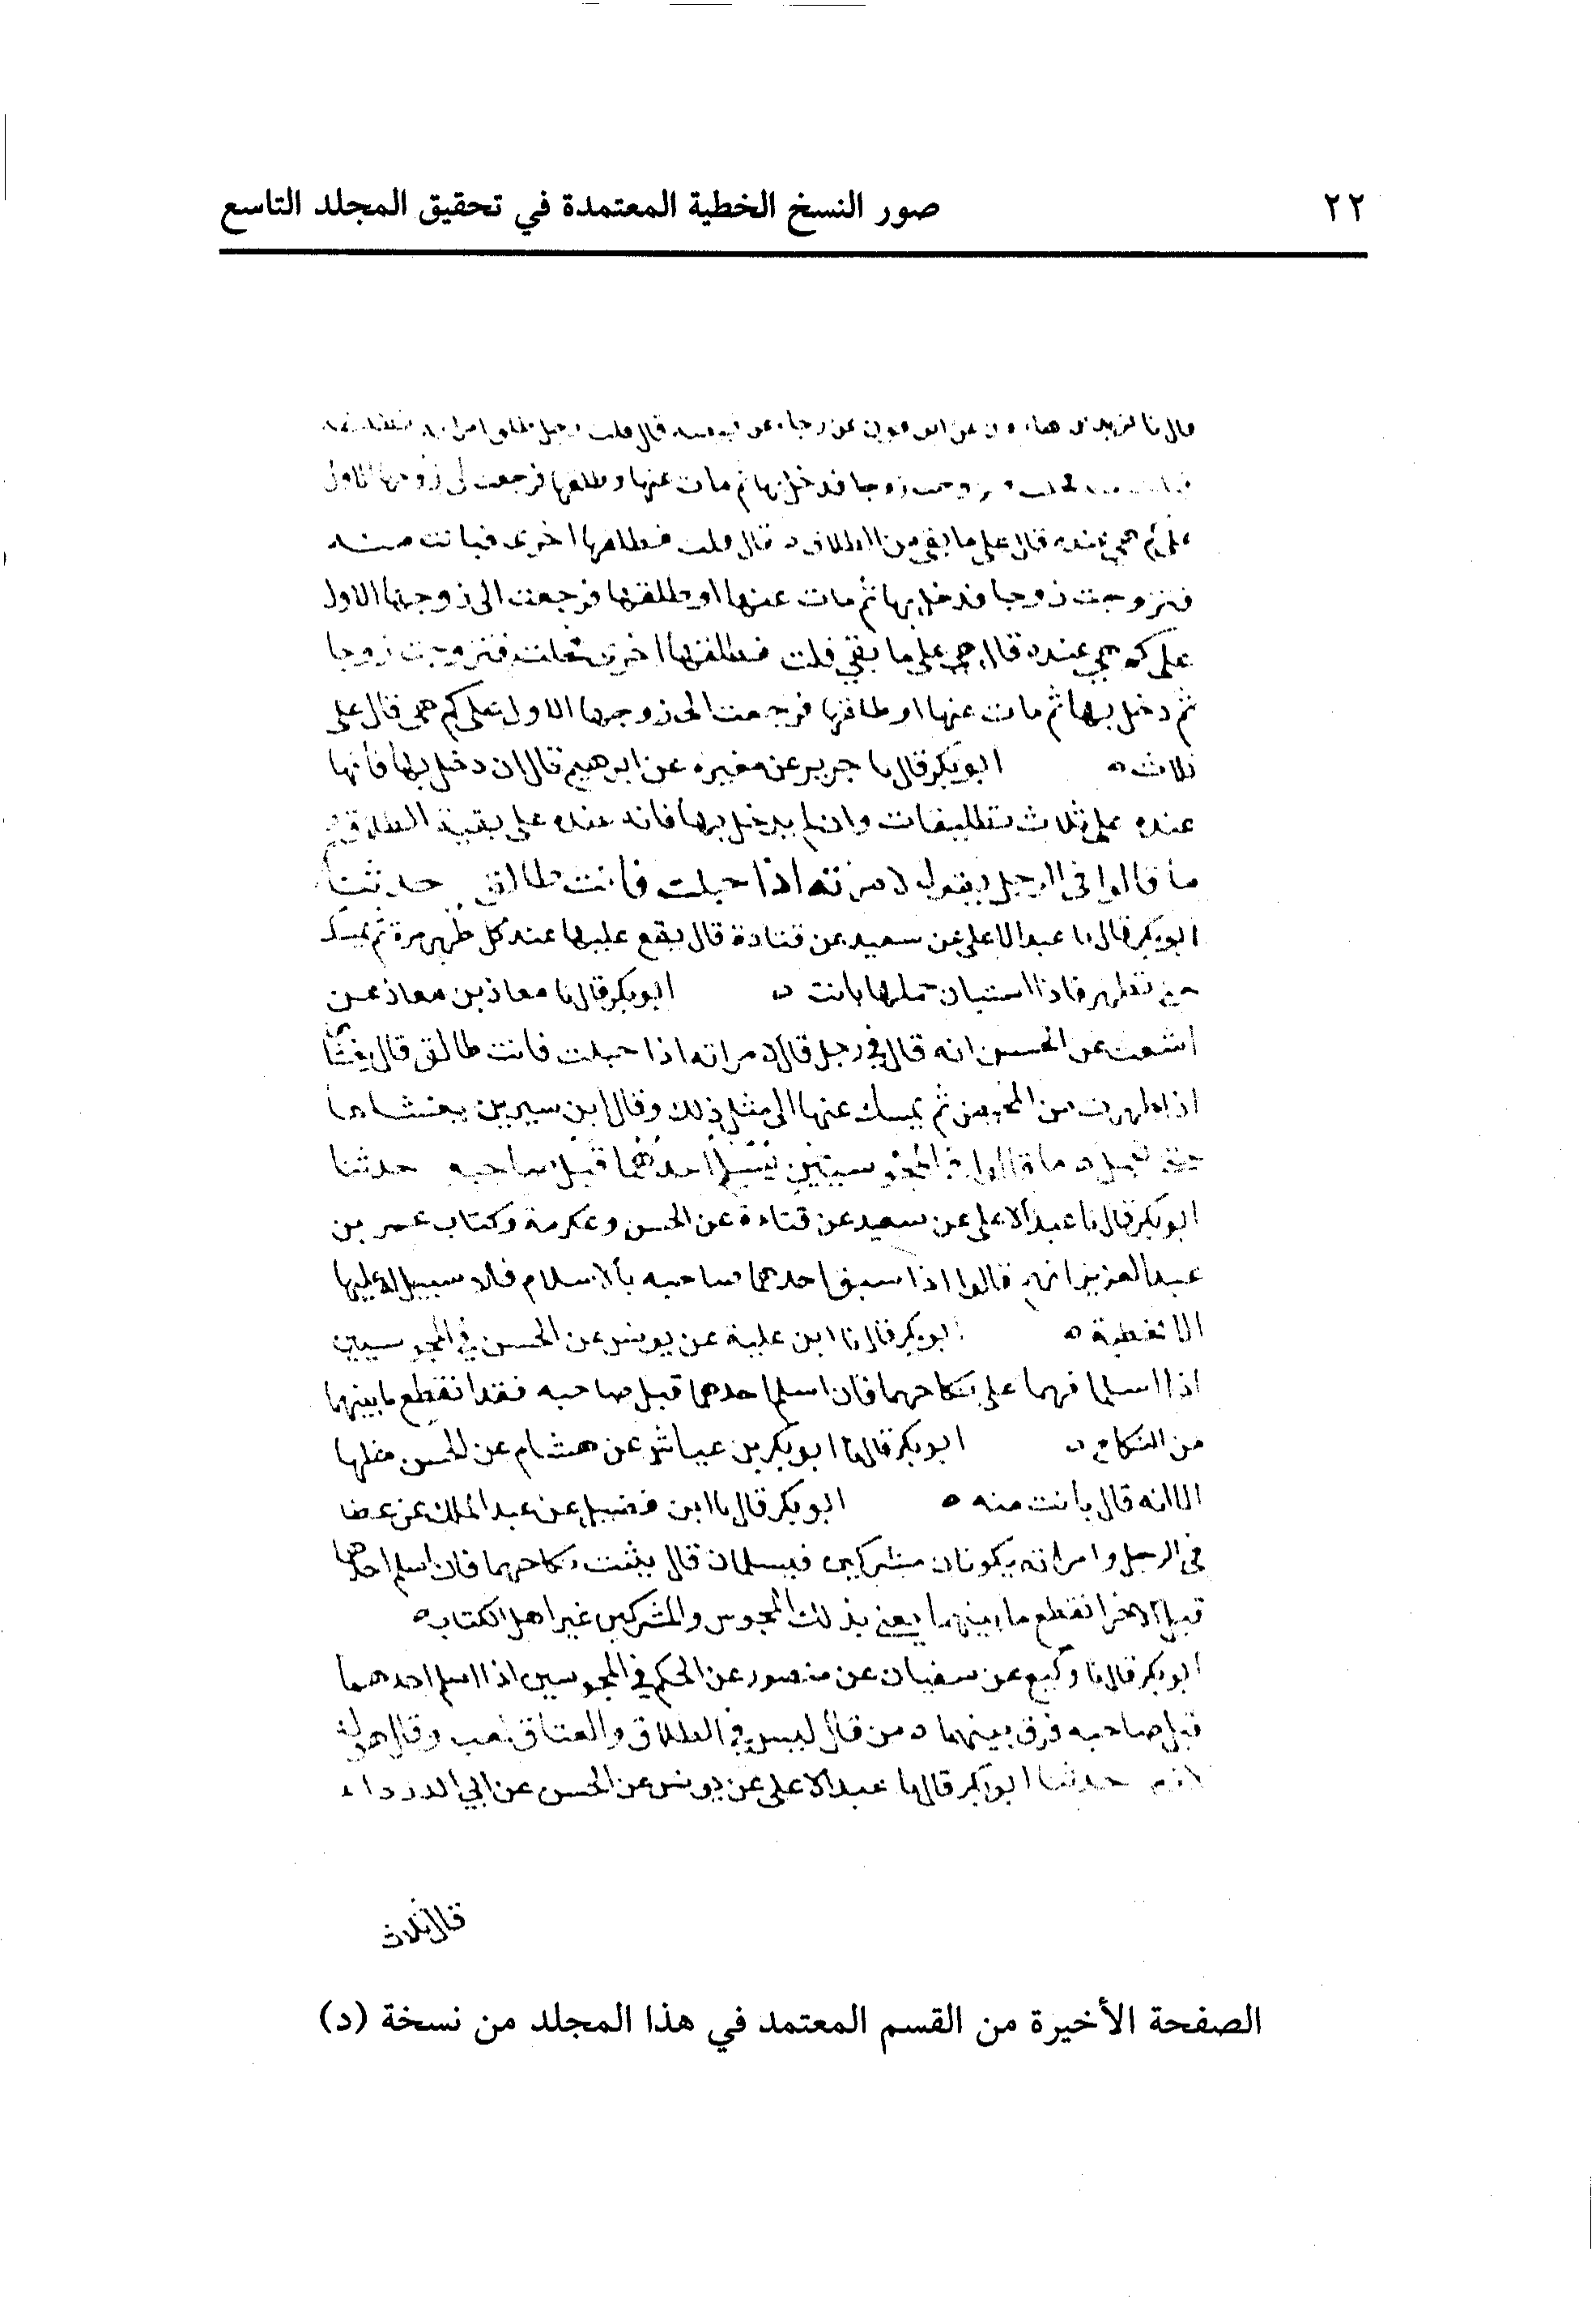 ٢٢ صور النسخ الخطية المعتمدة في تحقيق المجلد التاسع
قال نا يزيد بن هارون عن ابن عون عن رجاء عن قبيصه قال قلت رجل طلق امراته
زوجا فدخل بها ثم مات عنها او طلقها فرجعت الى زوجها الاول
على كم هي عنده قال على ما بقي من الطلاق ه قال قلت فطلقها اخرى فبانت منه
فتزوجت زوجا فدخل بها ثم مات عنها او طلقها فرجعت الى زوجها الاول
على كم هي عنده قال هي على ما بقي قلت فطلقها اخرى فتزوجت زوجا
ثم دخل بها ثم مات عنها او طلقها فرجعت الى زوجها الاول على كم هي قال على
ثلاث ه ابو بكر قال نا جرير عن مغيره عن ابرهيم قال ان دخل بها فانها
عنده على ثلاث تطليقات وان لم يدخل بها فانه عنده على بقية الطلاق
ما قالوا في الرجل يقول لامرته اذا حبلت فانت طالق حدثنا
ابو بكر قال نا عبد الاعلى عن سعيد عن قتادة قال يقع عليها عند كل طهر مرة ثم يمسك
حتى تطهر فاذا استبان حملها بانت ه ابو بكر قال نا معاذ بن معاذ عن
اشعث عن الحسن انه قال في رجل قال لامراته اذا حبلت فانت طالق قال يغشاها
اذا طهرت من المحيض ثم يمسك عنها الى مثل ذلك وقال ابن سيرين يغشاها
حتى تحمل ه ما قالوا في المجوسيين يسلم احدهما قبل صاحبه حدثنا
ابو بكر قال نا عبد الاعلى عن سعيد عن قتادة عن الحسن وعكرمة وكتاب عمر بن
عبد العزيز انهم قالوا اذا سبق احدهما صاحبه بالاسلام فلا سبيل له عليها
الا بخطبة ه ابو بكر قال نا ابن علية عن يونس عن الحسن في المجوسيين
اذا اسلما فهما على نكاحهما فان اسلم احدهما قبل صاحبه فقد انقطع ما بينهما
من النكاح ه ابو بكر قال نا ابو بكر بن عياش عن هشام عن الحسن مثلها
الا انه قال بانت منه ه ابو بكر قال نا ابن فضيل عن عبد الملك عن عطا
في الرجل وامراته يكونان مشركين فيسلمان قال يثبت نكاحهما فان اسلم احدهما
قبل الاخر انقطع ما بينهما يعني بذلك المجوس والمشركين غير اهل الكتاب ه
ابو بكر قال نا وكيع عن سفيان عن منصور عن الحكم في المجوسين اذا اسلم احدهما
قبل صاحبه فرق بينهما ه من قال ليس في الطلاق والعتاق لعب وقال هو له
لازم حدثنا ابو بكر قال نا عبد الاعلى عن يونس عن الحسن عن ابي الدرداء
قال ثلاث
الصفحة الأخيرة من القسم المعتمد في هذا المجلد من نسخة (د)